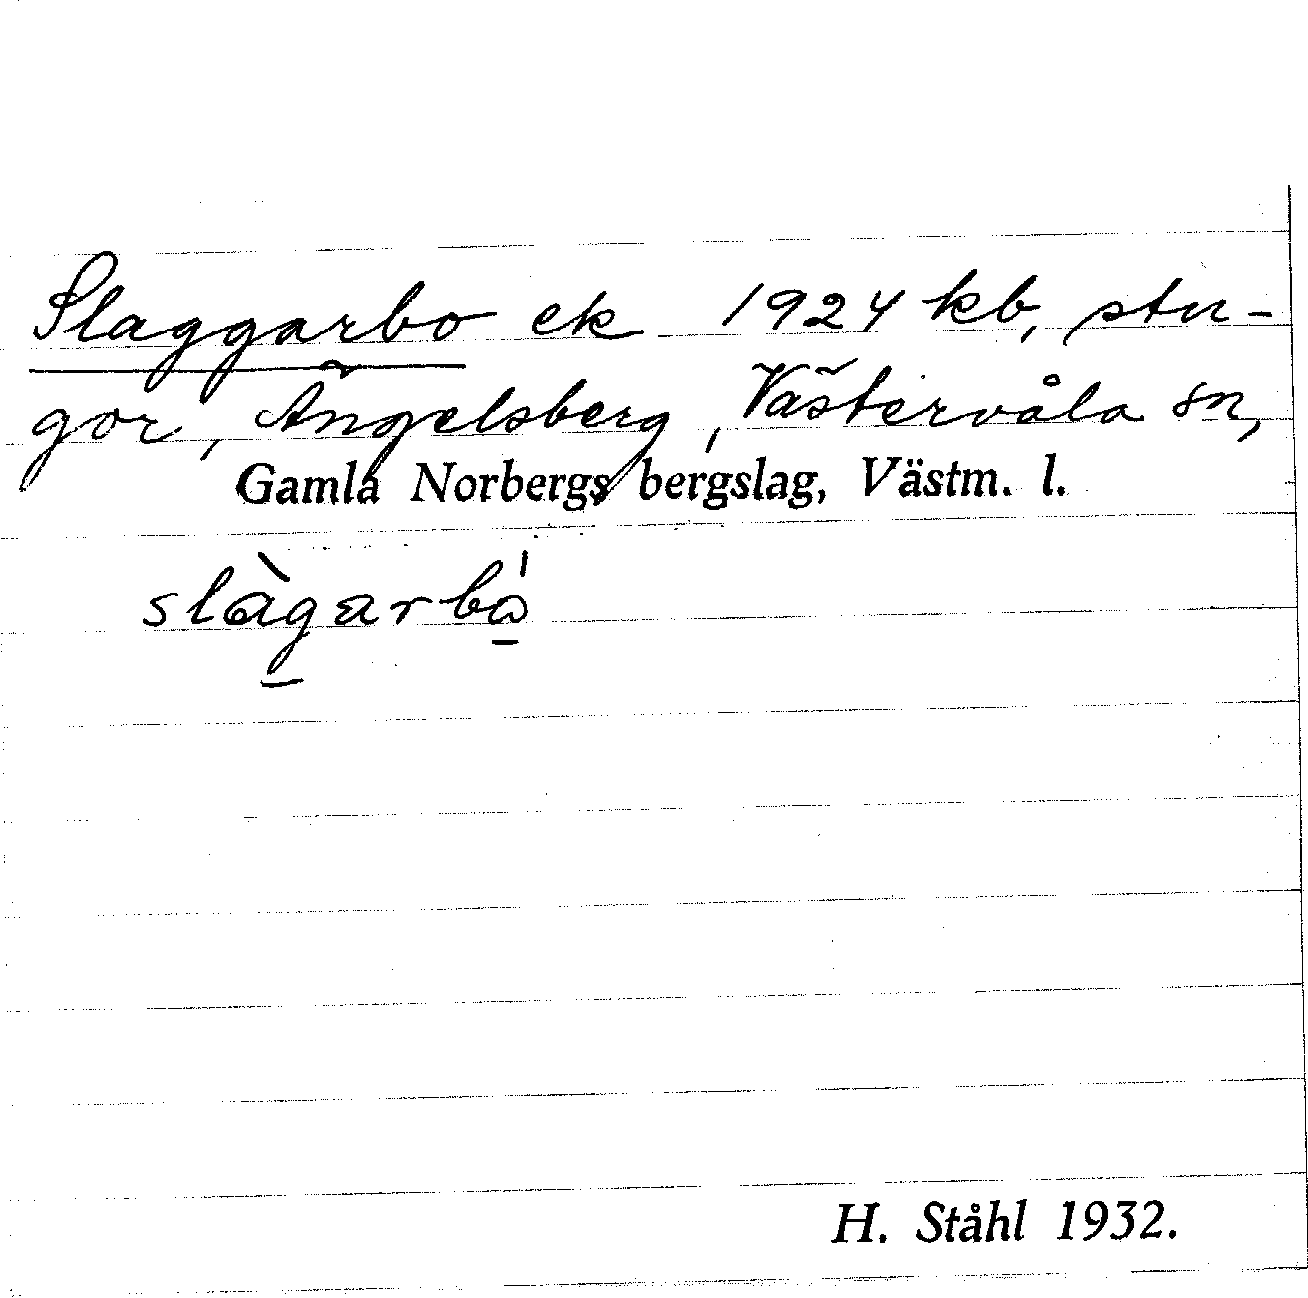 Slaggarbo ek 1924 kb, stu-
gor, Ängelsberg, Västervåla sn,
Gamla Norbergs bergslag, Västm. l.
slàgarbå
H. Ståhl 1932.